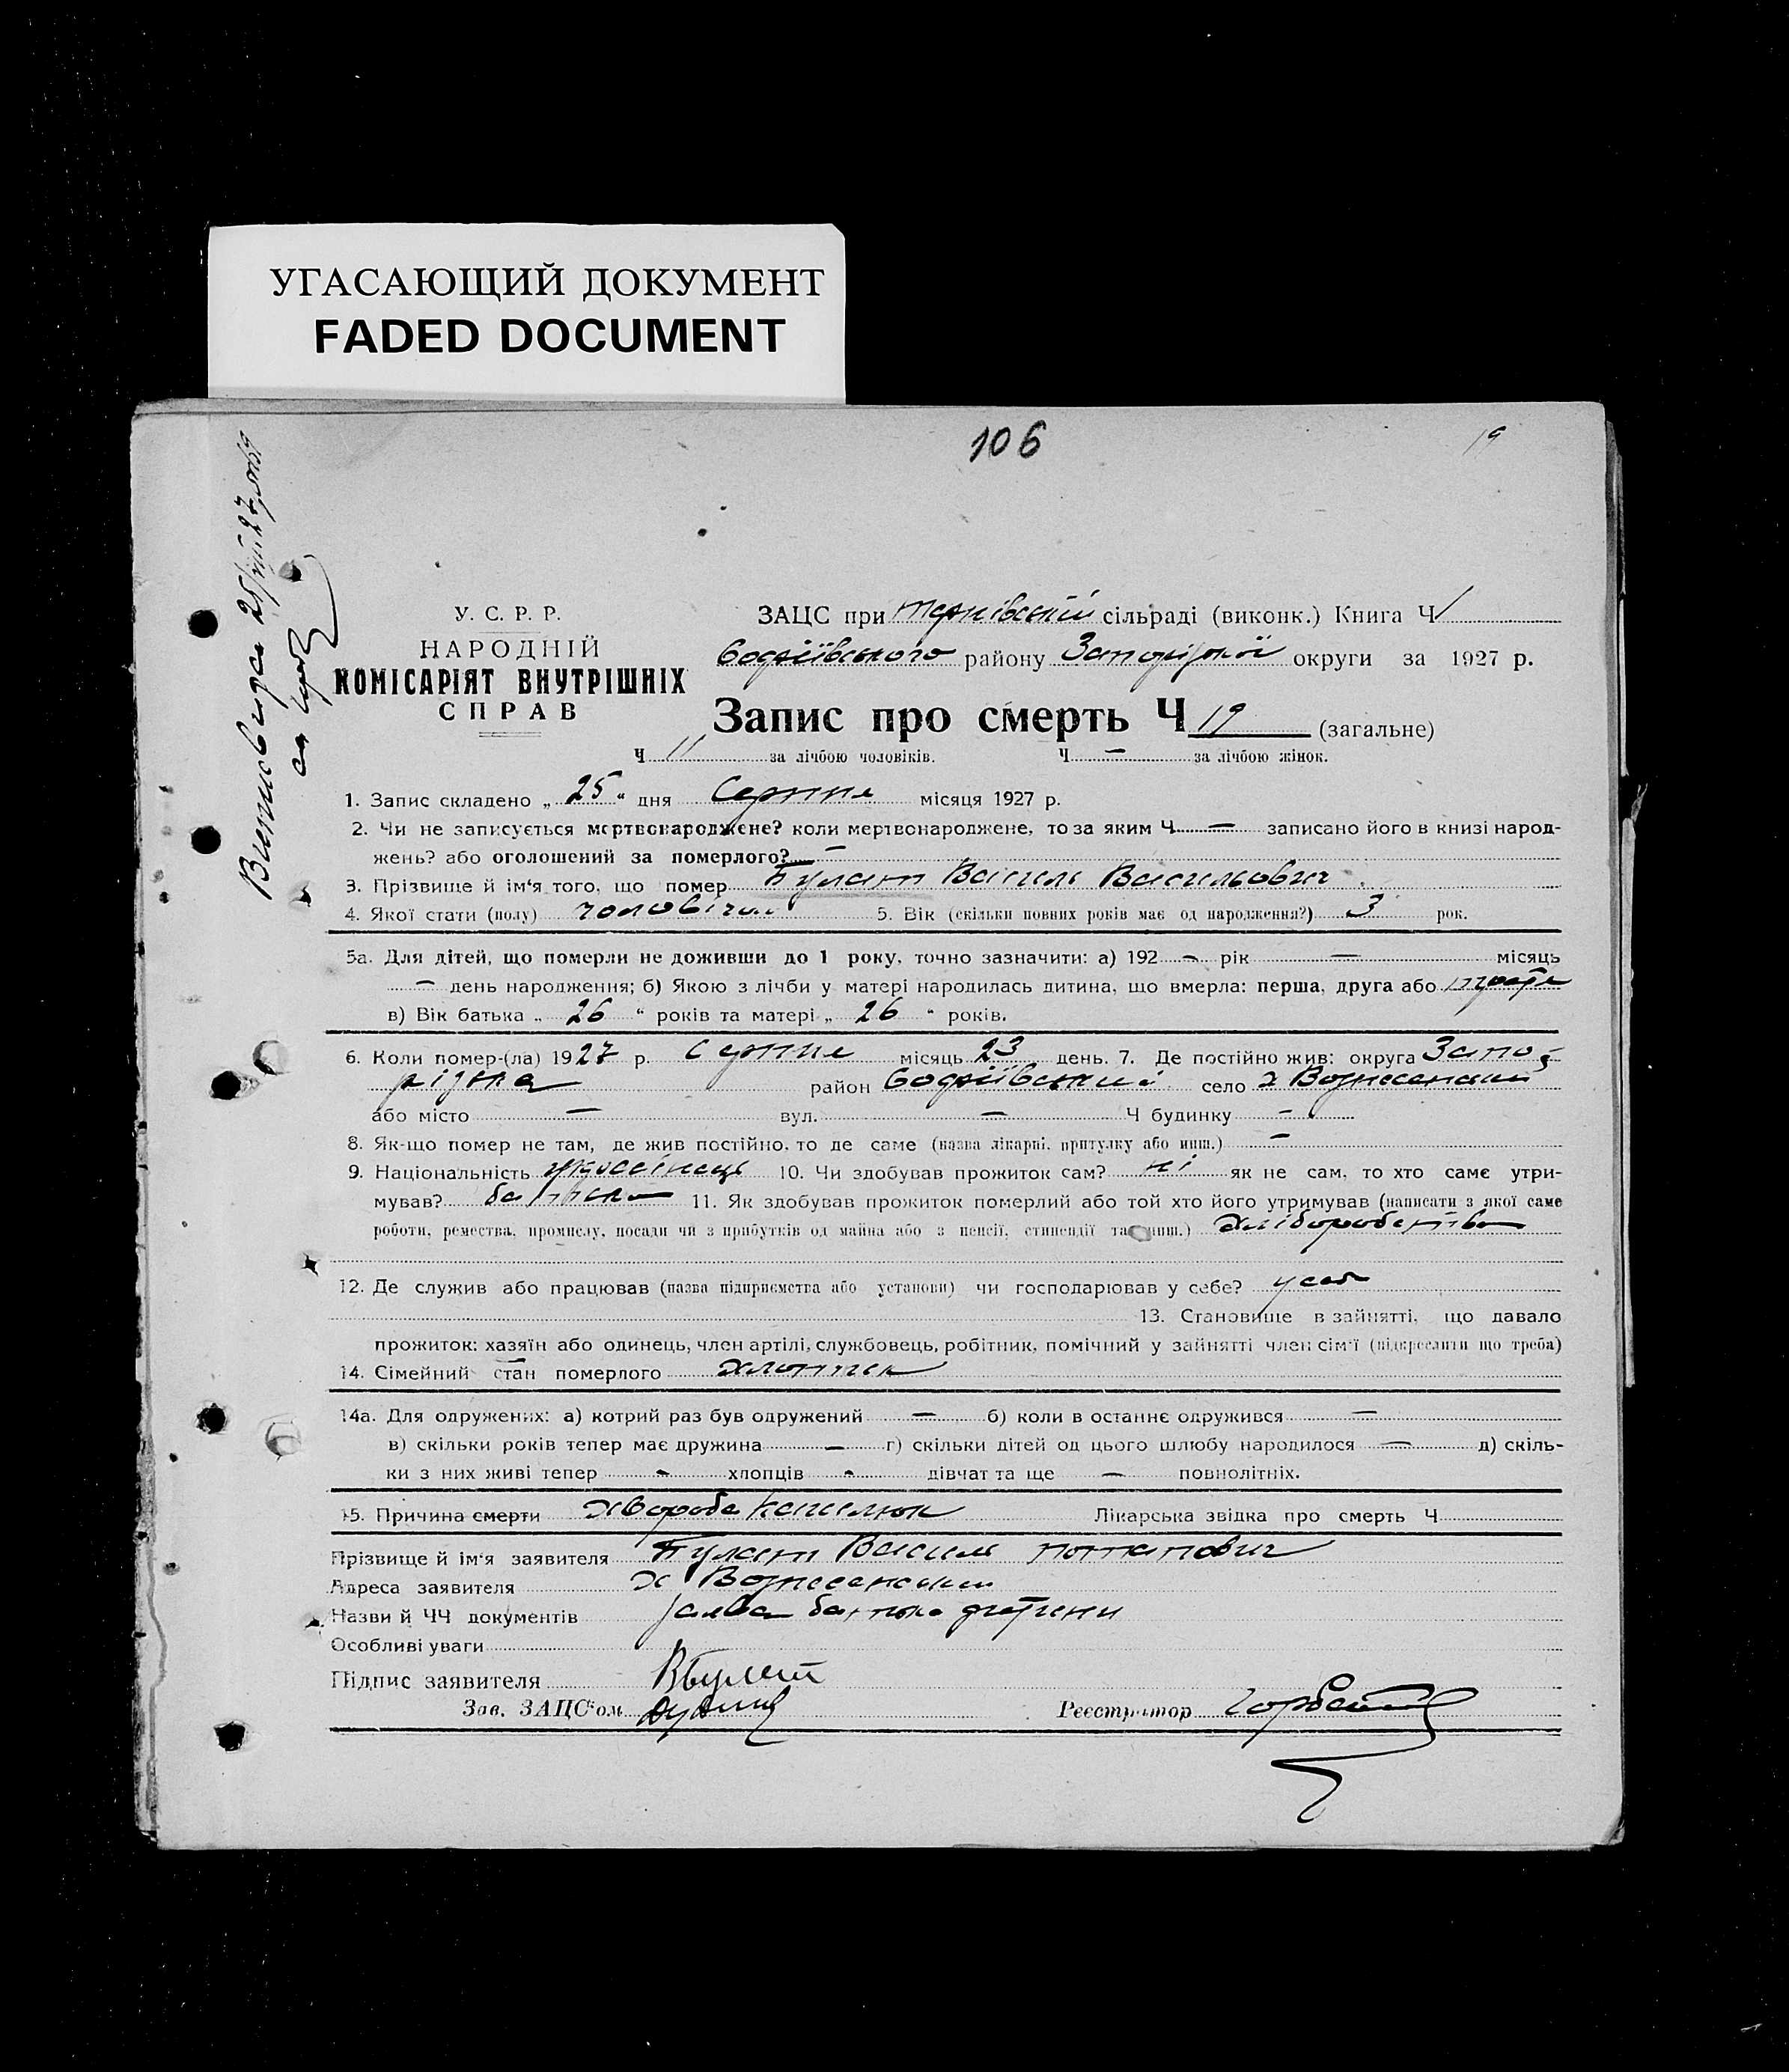 УГАСАЮЩИЙ ДОКУМЕНТ
FADED DOCUMENT
106
19
У. С. Р. Р.
НАРОДНІЙ
КОМІСАРІЯТ ВНУТРІШНІХ
СПРАВ
ЗАЦС при Тернівській сільраді (виконк.) Книга Ч 1
Софіївського району Запорізької округи за 1927 р.
Запис про смерть Ч 19 (загальне)
Ч 11 за лічбою чоловіків. Ч — за лічбою жінок.
1. Запис складено „ 25 “ дня Серпня місяця 1927 р.
2. Чи не записується мертвонароджене? коли мертвонароджене, то за яким Ч — записано його в книзі народ-
жень? або оголошений за померлого? —
3. Прізвище й ім‘я того, що помер Булат Василь Васильович
4. Якої стати (полу) чоловічої 5. Вік (скільки повних років має од народження?) 3 рок.
5а. Для дітей, що померли не доживши до 1 року, точно зазначити: а) 192 — рік — місяць
— день народження; б) Якою з лічби у матері народилась дитина, що вмерла: перша, друга або третя
в) Вік батька „ 26 “ років та матері „ 26 “ років.
6. Коли помер-(ла) 1927 р. Серпня місяць 23 день. 7. Де постійно жив: округа Запо-
різька район Софіївський село х Вознесенський
або місто — вул. — Ч будинку —
8. Як-що помер не там, де жив постійно, то де саме (назва лікарні, притулку або инш.) —
9. Національність українець 10. Чи здобував прожиток сам? ні як не сам, то хто саме утри-
мував? батько 11. Як здобував прожиток померлий або той хто його утримував (написати з якої саме
роботи, ремества, промислу, посади чи з прибутків од майна або з пенсії, стипендії та инш.) хліборобство
12. Де служив або працював (назва підприємства або установи) чи господарював у себе? у себе
13. Становище в зайнятті, що давало
прожиток: хазяїн або одинець, член артілі, службовець, робітник, помічний у зайнятті член сім‘ї (підкреслити що треба)
14. Сімейний стан померлого хлопчик
14а. Для одружених: а) котрий раз був одружений — б) коли в останнє одружився —
в) скільки років тепер має дружина — г) скільки дітей од цього шлюбу народилося — д) скіль-
ки з них живі тепер - хлопців - дівчат та ще — повнолітніх.
15. Причина смерти хвороба кашлюк Лікарська звідка про смерть Ч
Прізвище й ім‘я заявителя Булат Василь Потапович
Адреса заявителя х Вознесенський
Назви й ЧЧ документів заява батька дитини
Особливі уваги
Підпис заявителя ВБулат
Зав. ЗАЦС‘ом
Реєстратор Горбат